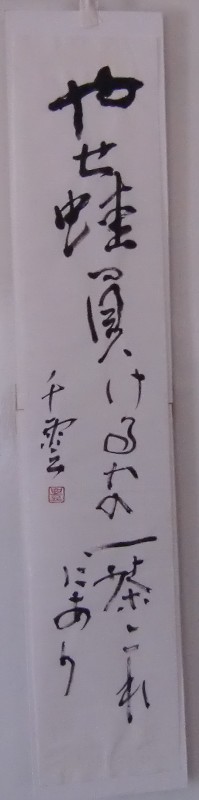 やせ蛙負けるな一茶これ
にあり
千雲